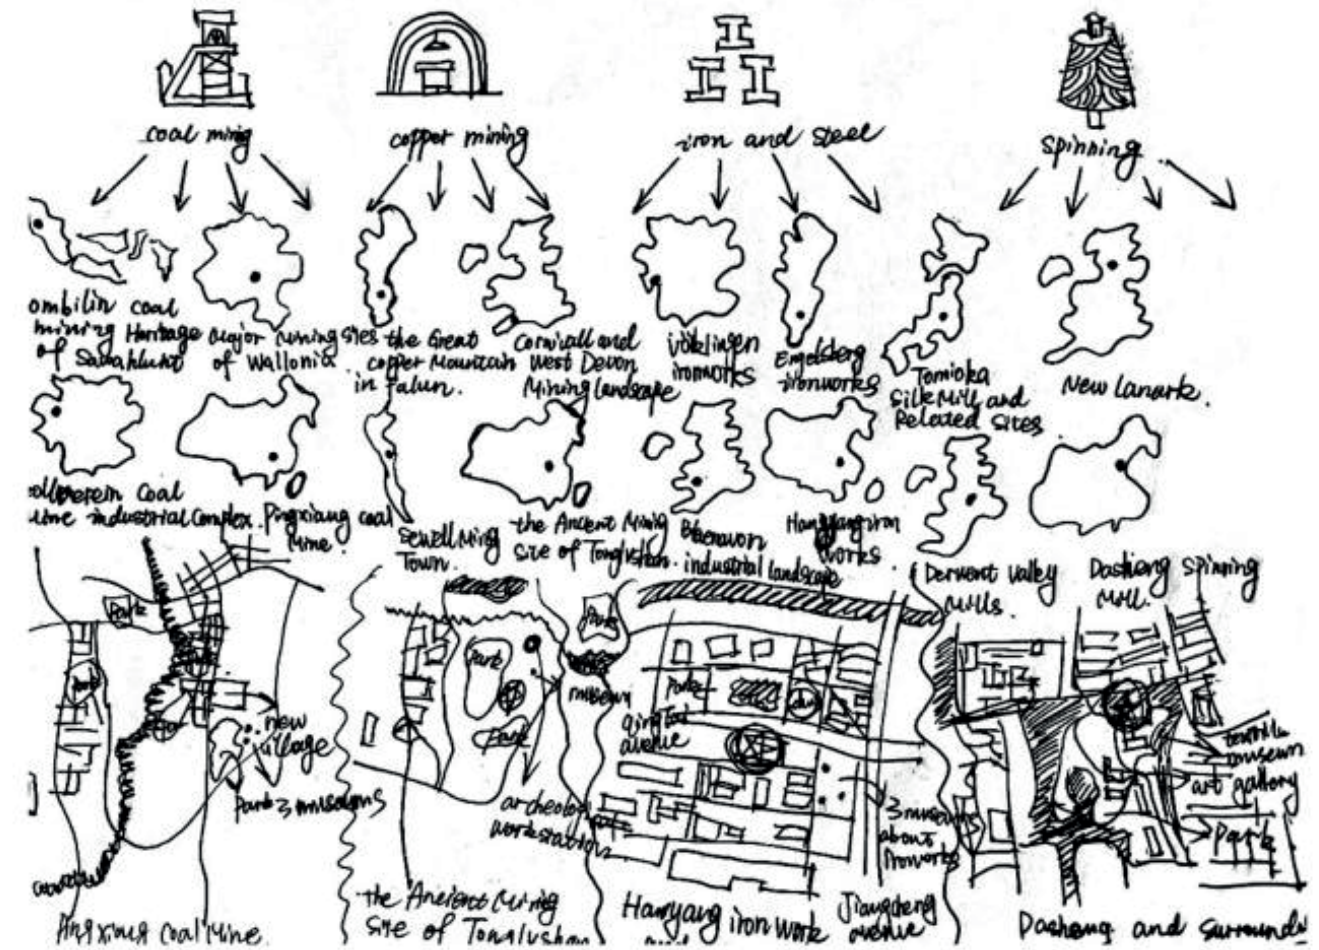 coal mining
copper mining
iron and steel
spinning
ombilin coal
mining Heritage
of Sawahlunto
Major mining sites
of Wallonia
the Great
copper Mountain
in Falun.
Cornwall and
West Devon
Mining landscape
Völklingen
ironworks
Engelsberg
ironworks
Tomioka
Silk Mill and
Related Sites
New Lanark.
ollverein Coal
Mine industrial Complex.
Pingxiang coal
Mine.
Sewell Mining
Town.
the Ancient Mining
Site of Tonglushan.
Blaenavon
industrial landscape
Hanyang iron
works
Derwent Valley
Mills.
Dasheng Spinning
Mill.
Park
Park
new
village
Park 3 museums
Pingxiang Coal Mine
Park
Park
museum
archeology
workstation
the Ancient Mining
Site of Tonglushan
Park
Park
qingtai
avenue
3 museums
about
ironworks
Hanyang iron work
Jiangcheng
avenue
textile
museum
art gallery
Park
Dasheng and surroundi